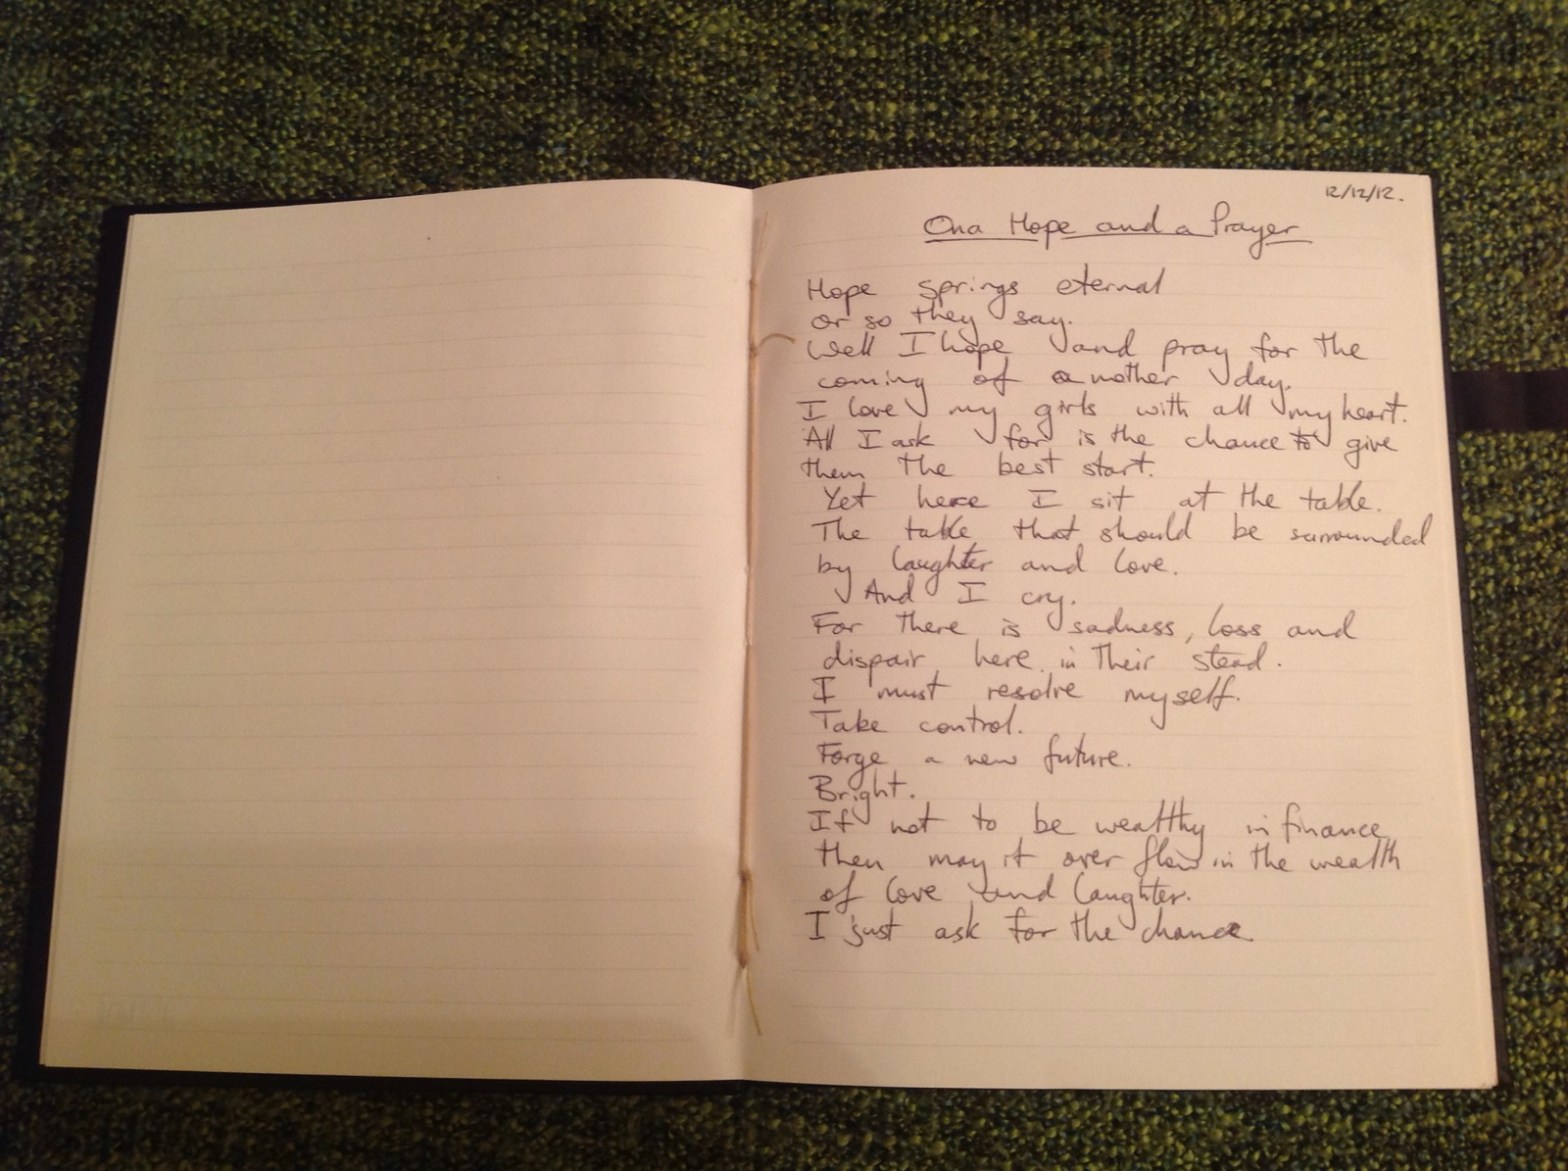 12/12/12.
On a Hope and a Prayer
Hope springs eternal
or so they say.
Well I hope and pray for the
coming of another day.
I love my girls with all my heart.
All I ask for is the chance to give
them the best start.
Yet here I sit at the table.
The table that should be surrounded
by laughter and love.
And I cry.
For there is sadness, loss and
dispair here in their stead.
I must resolve myself.
Take control.
Forge a new future.
Bright.
If not to be wealthy in finance
then may it over flow in the wealth
of love and laughter.
I just ask for the chance